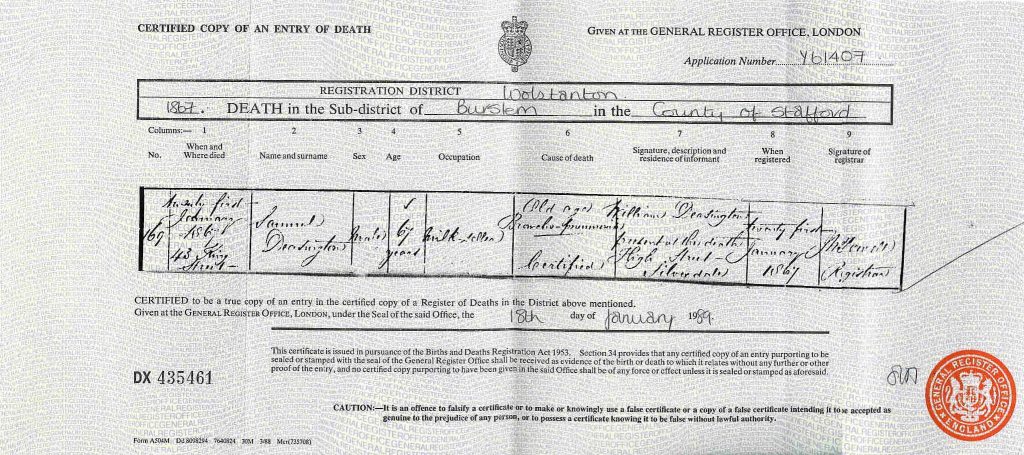 CERTIFIED COPY OF AN ENTRY OF DEATH
GIVEN AT THE GENERAL REGISTER OFFICE, LONDON
Application Number Y61407
REGISTRATION DISTRICT Wolstanton
1867. DEATH in the Sub-district of Burslem in the County of Stafford
Columns:— 1 2 3 4 5 6 7 8 9
No. When and Where died Name and surname Sex Age Occupation Cause of death Signature, description and residence of informant When registered Signature of registrar
169 Twenty first January 1867 43 King Street Samuel Deasington Male 67 years Milk-seller Old age Certified William Deasington present at the death High Street Silverdale Twenty first January 1867 Registrar
CERTIFIED to be a true copy of an entry in the certified copy of a Register of Deaths in the District above mentioned.
Given at the GENERAL REGISTER OFFICE, LONDON, under the Seal of the said Office, the 18th day of January 1989.
This certificate is issued in pursuance of the Births and Deaths Registration Act 1953. Section 34 provides that any certified copy of an entry purporting to be
sealed or stamped with the seal of the General Register Office shall be received as evidence of the birth or death to which it relates without any further or other
proof of the entry, and no certified copy purporting to have been given in the said Office shall be of any force or effect unless it is sealed or stamped as aforesaid.
DX 435461
CAUTION:—It is an offence to falsify a certificate or to make or knowingly use a false certificate or a copy of a false certificate intending it to be accepted as
genuine to the prejudice of any person, or to possess a certificate knowing it to be false without lawful authority.
Form A504M Dd 8098294 7640824 30M 3/88 Mcr(735708)
GENERAL REGISTER OFFICE
ENGLAND